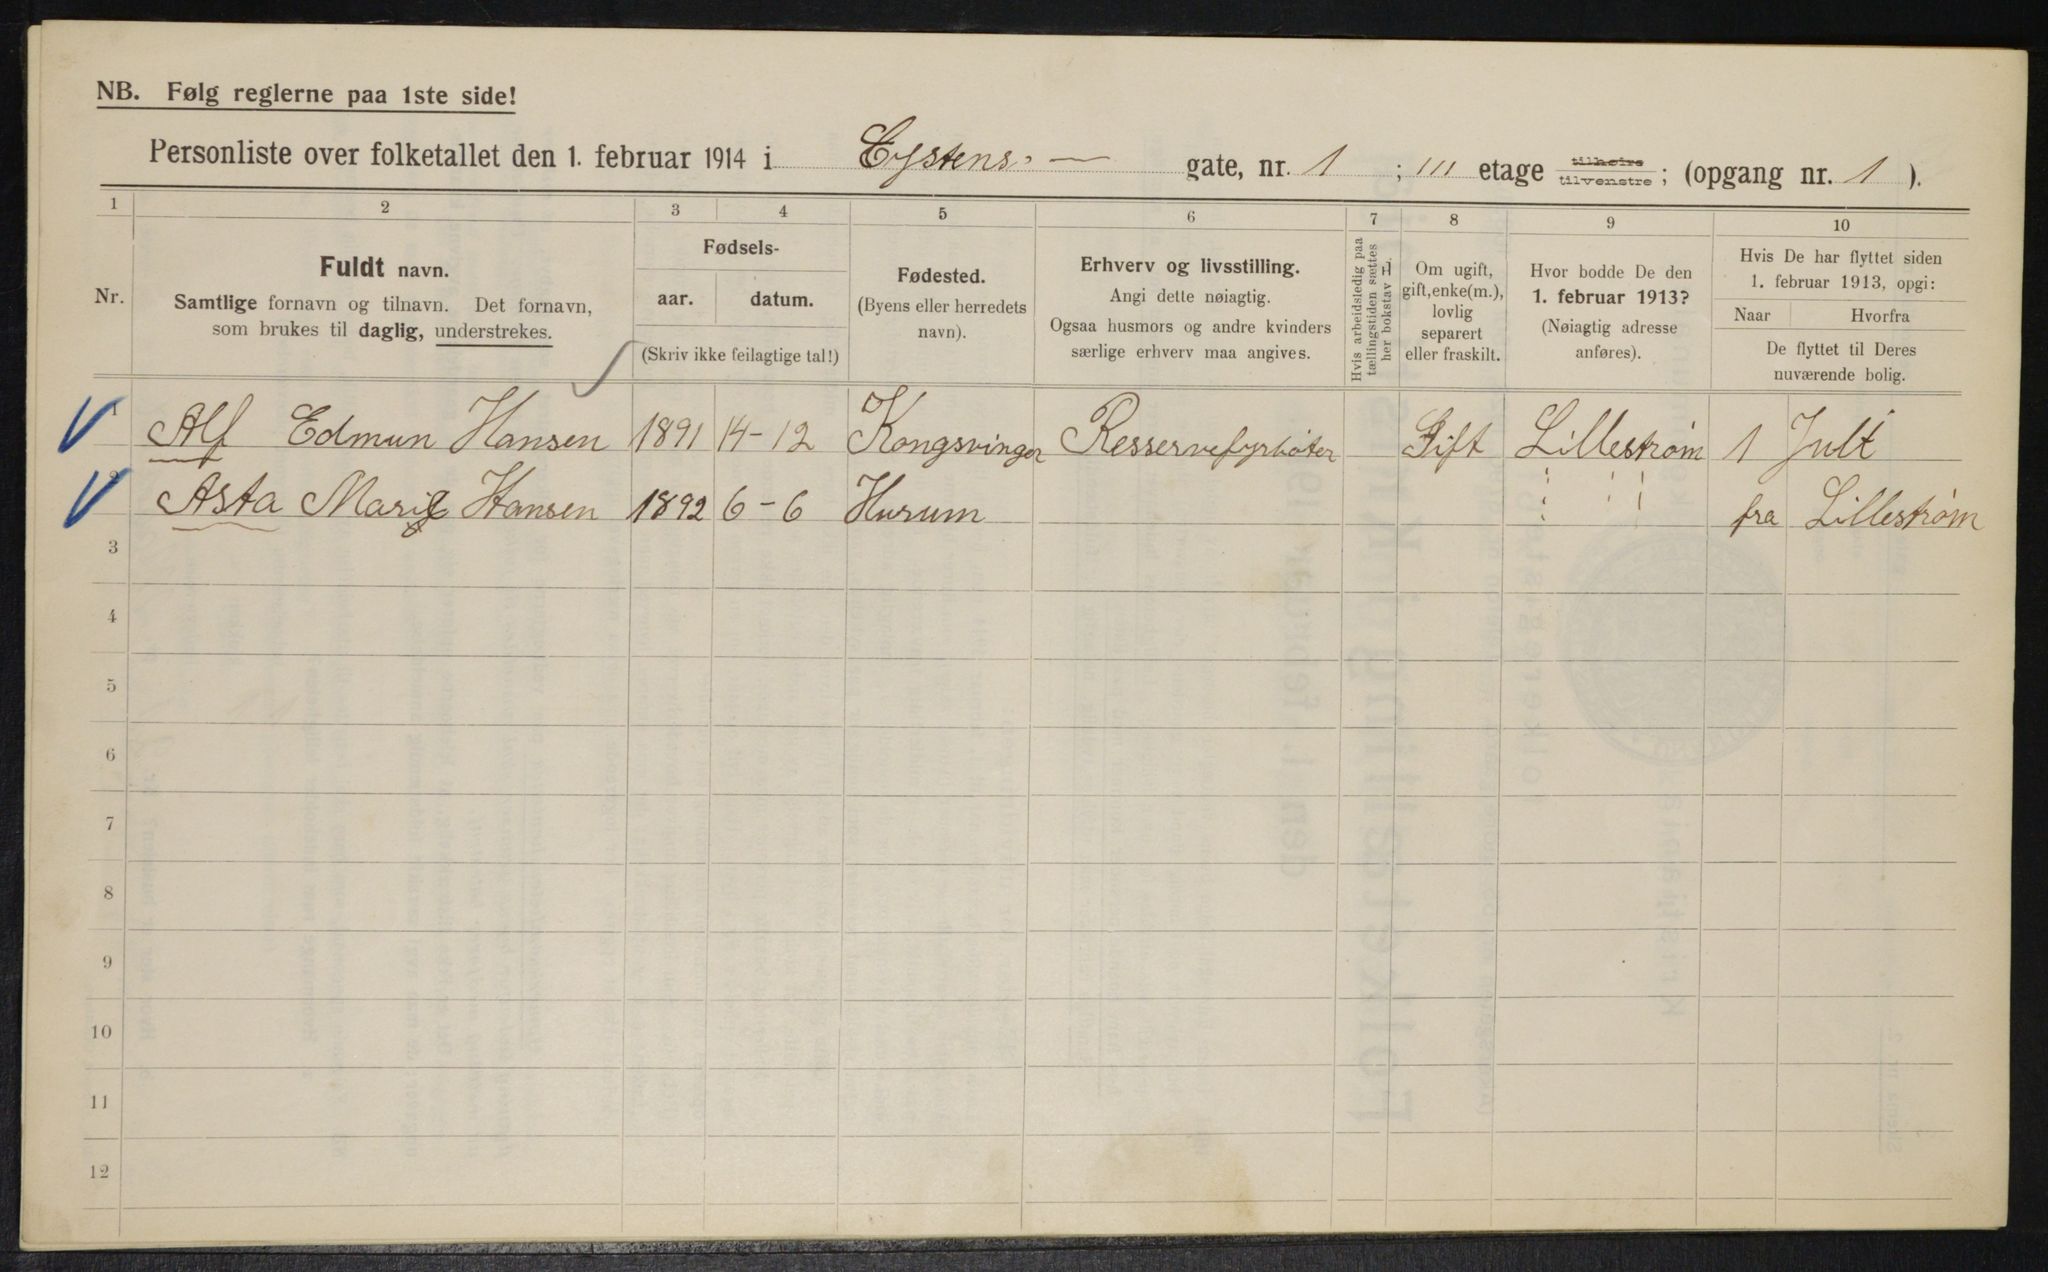 NB. Følg reglerne paa 1ste side!
Personliste over folketallet den 1. februar 1914 i Eystens - gate, nr. 1 ; III etage tilhøire tilvenstre ; (opgang nr. 1 ).
1 2 3 4 5 6 7 8 9 10
Nr.
Fuldt navn.
Samtlige fornavn og tilnavn. Det fornavn,
som brukes til daglig, understrekes.
Fødsels-
aar. datum.
(Skriv ikke feilagtige tal!)
Fødested.
(Byens eller herredets
navn).
Erhverv og livsstilling.
Angi dette nøiagtig.
Ogsaa husmors og andre kvinders
særlige erhverv maa angives.
Hvis arbeidsledig paa
tællingstiden sættes
her bokstav L.
Om ugift,
gift, enke(m.),
lovlig
separert
eller fraskilt.
Hvor bodde De den
1. februar 1913?
(Nøiagtig adresse
anføres).
Hvis De har flyttet siden
1. februar 1913, opgi:
Naar Hvorfra
De flyttet til Deres
nuværende bolig.
1 Alf Edmun Hansen 1891 14-12 Kongsvinger Resservefyrbøter Gift Lillestrøm 1 Juli
2 Asta Marie Hansen 1892 6-6 Hurum " " " fra Lillestrøm
3
4
5
6
7
8
9
10
11
12